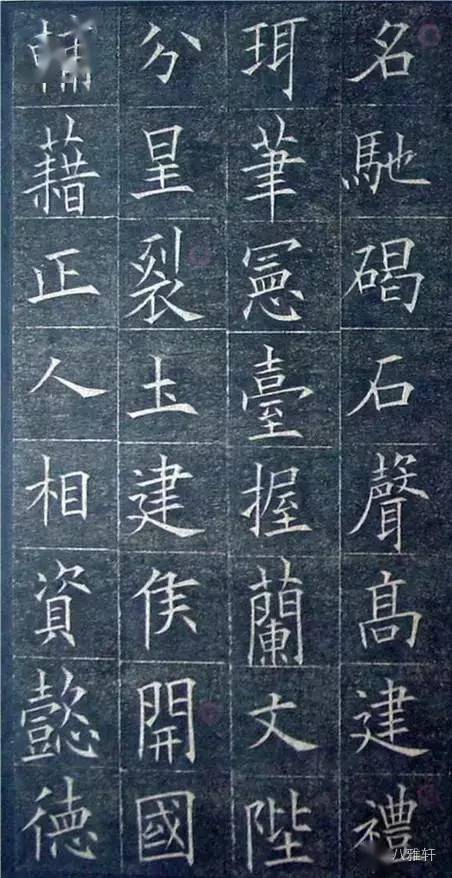 名馳碣石聲髙建禮
珥筆憲臺握蘭文陛
分星裂圡建侯開國
輔藉正人相資懿德
八雅轩